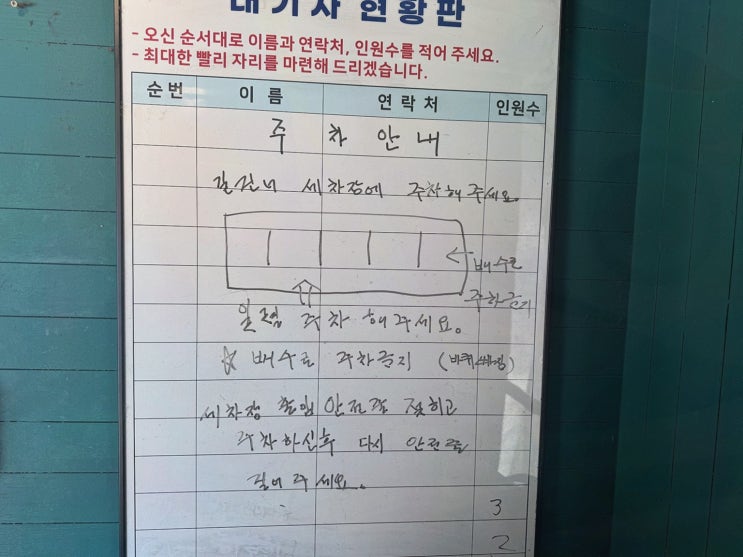 대기자 현황판
- 오신 순서대로 이름과 연락처, 인원수를 적어 주세요.
- 최대한 빨리 자리를 마련해 드리겠습니다.
순 번 이 름 연 락 처 인원수
주 차 안 내
길건너 세차장에 주차해 주세요.
배수로
주차금지
일렬 주차 해주세요.
☆ 배수로 주차금지
세차장 출입 안전줄 젖히고
주차하신후 다시 안전줄
걸어주세요.
3
2